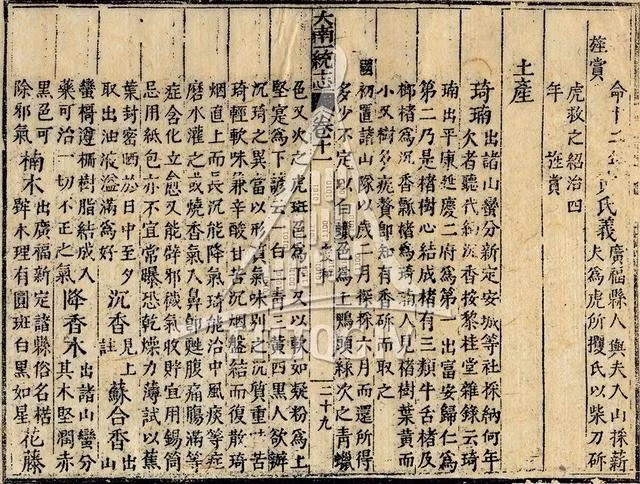 命十二年 氏義 廣福縣人與夫入山採薪
夫為虎所攫氏以柴刀斫
旌賞
虎救之紹治四
年 旌賞
土產
琦瑀 出諸山蠻分新定安城等社採納何年
欠者聽代納沉香按黎桂堂雜錄云琦
瑀出平康延慶二府為第一出富安歸仁為
第二乃是楮樹心結成楮有三類牛舌楮及
榔楮為沉香瓢楮為琦瑀人見楮樹葉黃而
小又樹多疣贅即知有香斫而取之
國初置諸山隊以歲二月探採六月而還所得
多少不定以白蠟色為上鴨頭綠次之青蠟
大南一統志 卷十一 慶和 二十九
色又次之虎斑色為下又以軟如凝粉為上
堅實為下諺云一白二青三黃四黑人欲辦
沉琦之異當以形質氣味別之沉質重味苦
琦輕軟味兼辛酸甘苦沉烟盤結而復散琦
烟直上而長沉能降氣琦能治中風痰等症
磨水灌之或燒香氣入鼻即甦腹痛腸滿等
症含化立愈又能辟邪穢氣收貯宜用錫筒
忌用紙包亦不宜常曝恐乾燥力薄試以蕉
葉封密晒於日中至夕
取出油液溢滿為好 沉香 見上註 蘇合香 出山
蠻 遵 樹脂結成入
藥可治一切不正之氣 降香木 出諸山蠻分
其木堅潤赤
黑色可
除邪氣 楠木 出廣福新定諸縣俗名楛
木理有圓斑白黑如星 花藤